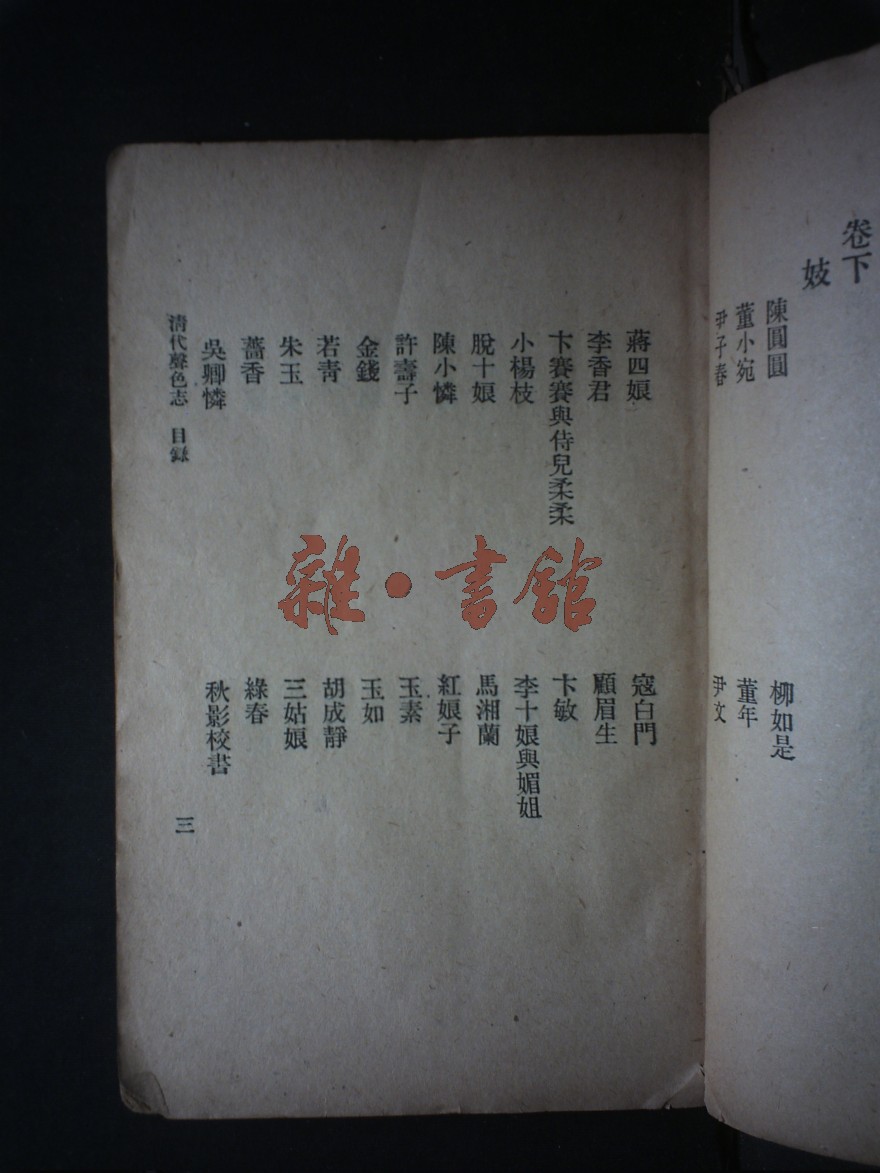 卷下
妓
陳圓圓
柳如是
董小宛
董年
尹子春
尹文
蔣四娘
寇白門
李香君
顧眉生
卞賽賽與侍兒柔柔
卞敏
小楊枝
李十娘與媚姐
脫十娘
馬湘蘭
陳小憐
紅娘子
許壽子
玉素
金錢
玉如
若青
胡成靜
朱玉
三姑娘
薔香
綠春
吳卿憐
秋影校書
清代聲色志 目錄
三
雜·書館